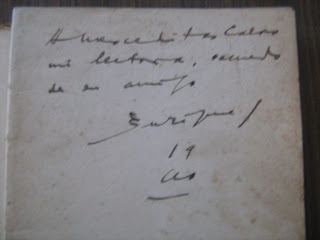 A Merceditas Calvo
mi lectora, recuerdo
de su amigo
Enrique
19